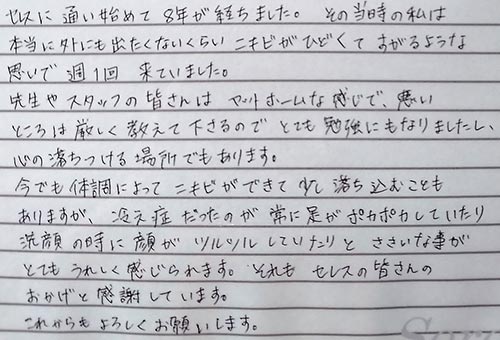 セレスに通い始めて8年が経ちました。その当時の私は
本当に外にも出たくないくらいニキビがひどくてすがるような
思いで週1回来ていました。
先生やスタッフの皆さんはアットホームな感じで、悪い
ところは厳しく教えて下さるのでとても勉強にもなりましたし、
心の落ちつける場所でもあります。
今でも体調によってニキビができて少し落ち込むことも
ありますが、冷え症だったのが常に足がポカポカしていたり
洗顔の時に顔がツルツルしていたりとささいな事が
とてもうれしく感じられます。それもセレスの皆さんの
おかげと感謝しています。
これからもよろしくお願いします。